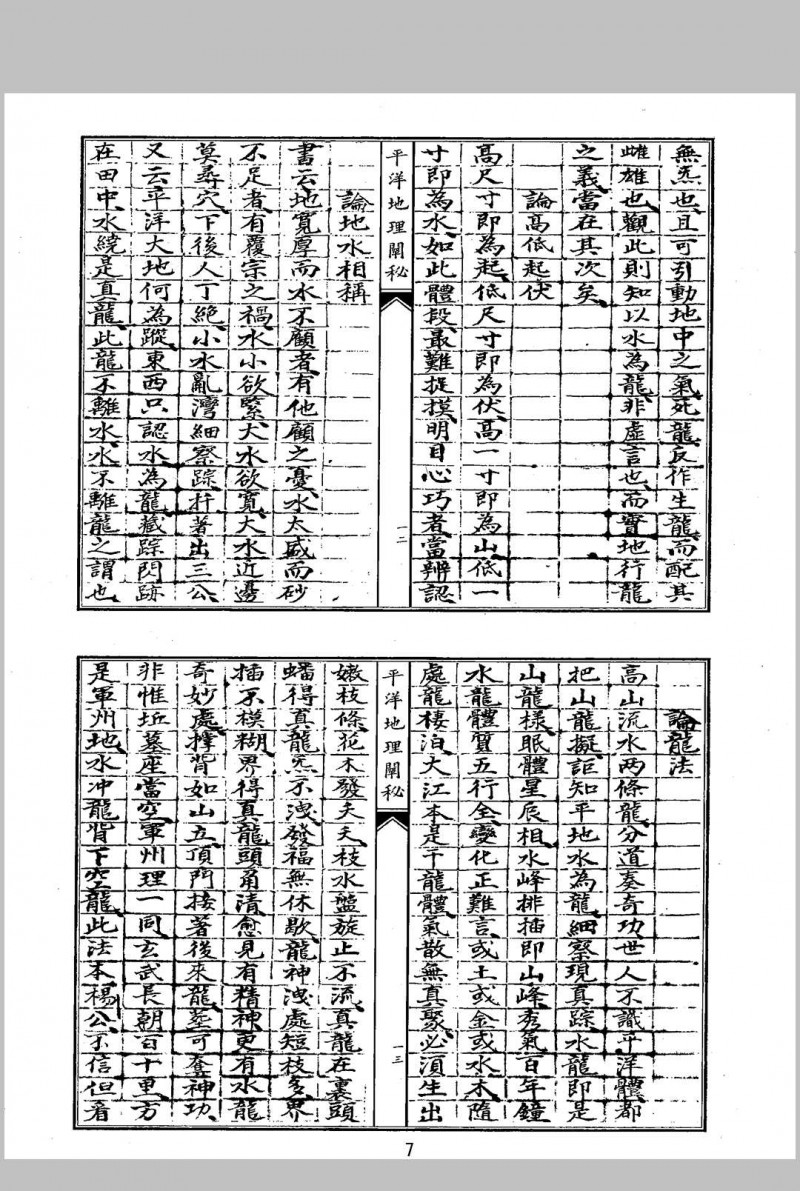 無炁也且可引動地中之氣死龍反作生龍而配其
雌雄也觀此則知以水為龍非虛言也而實地行龍
之義當在其次矣
論高低起伏
高尺寸即為起低尺寸即為伏高一寸即為山低一
寸即為水如此體段最難捉摸明目心巧者當辨認
平洋地理闡秘
一二
論地水相稱
書云地寬厚而水不顧者有他顧之憂水太盛而砂
不足者有覆宗之禍水小欲緊大水欲寬大水近邊
莫尋穴下後人丁絕小水亂灣細察踪扦著出三公
又云平洋大地何為蹤東西只認水為龍藏踪閃跡
在田中水繞是真龍此龍不離水水不離龍之謂也
論龍法
高山流水两條龍分道奏奇功世人不識平洋體都
把山龍擬詎知平地水為龍細察現真踪水龍即是
山龍樣眠體星辰相水峰排插即山峰秀氣百年鐘
水龍體質五行全變化正難言或土或金或水木隨
處龍棲泊大江本是干龍體氣散無真聚必須生出
平洋地理闡秘
一三
嫩枝條花木發夭夭枝水盤旋止不流真龍在裏頭
蟠得真龍炁不洩發福無休歇龍神洩處短枝多界
插不模糊界得真龍頭角清愈見有精神更有水龍
奇妙處撑背如山五頂門接著後來龍塟可奪神功
非惟坵墓座當空軍州理一同玄武長朝百十里方
是軍州地水冲龍背下空龍此法本楊公不信但看
7